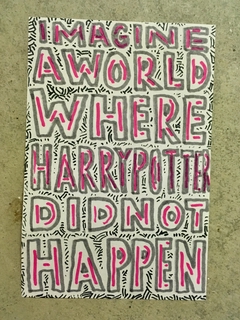 IMAGINE
A WORLD
WHERE
HARRY POTTER
DID NOT
HAPPEN